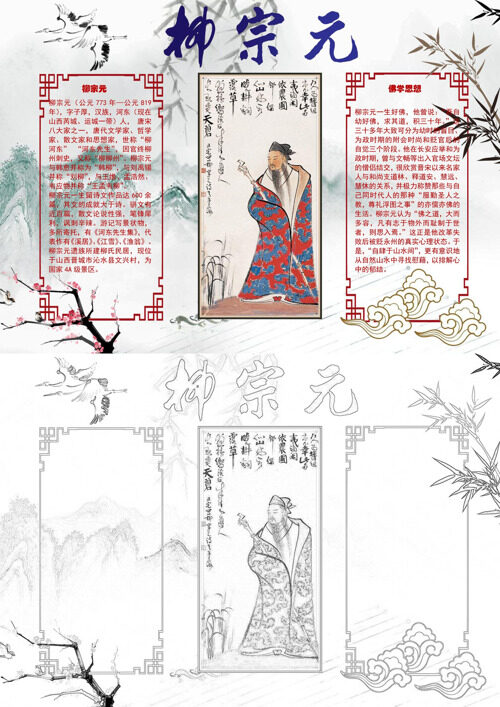 柳宗元
柳宗元
柳宗元（公元 773 年一公元 819
年），字子厚，汉族，河东（现在
山西芮城、运城一带）人，唐宋
八大家之一，唐代文学家、哲学
家、散文家和思想家，世称“柳
河东”、“河东先生”，因官终柳
州刺史，又称“柳柳州”。柳宗元
与韩愈并称为“韩柳”，与刘禹锡
并称“刘柳”，与王维、孟浩然、
韦应物并称“王孟韦柳”。
柳宗元一生留诗文作品达 600 余
篇，其文的成就大于诗。骈文有
近百篇，散文论说性强，笔锋犀
利，讽刺辛辣。游记写景状物，
多所寄托，有《河东先生集》，代
表作有《溪居》、《江雪》、《渔翁》。
柳宗元遗族所建柳氏民居，现位
于山西晋城市沁水县文兴村，为
国家 4A 级景区。
佛学思想
柳宗元一生好佛，他曾说，“吾自
幼好佛，求其道，积三十年”。这
三十多年大致可分为幼时的盲目、
为政时期的附会时间和贬官后的
自觉三个阶段。他在长安应举和为
政时期，曾与文畅等出入官场文坛
的僧侣结交，很欣赏晋宋以来名家
人与和尚支道林、释道安、慧远、
慧休的关系，并极力称赞那些与自
己同时代人的那种“服勤圣人之
教，尊礼浮图之事”的亦儒亦佛的
生活。柳宗元认为“佛之道，大而
多容，凡有志于物外而耻制于世
者，则思入焉。”这正是他改革失
败后被贬永州的真实心理状态。于
是，“自肆于山水间”，更有意识地
从自然山水中寻找慰藉，以排解心
中的郁结。
柳宗元